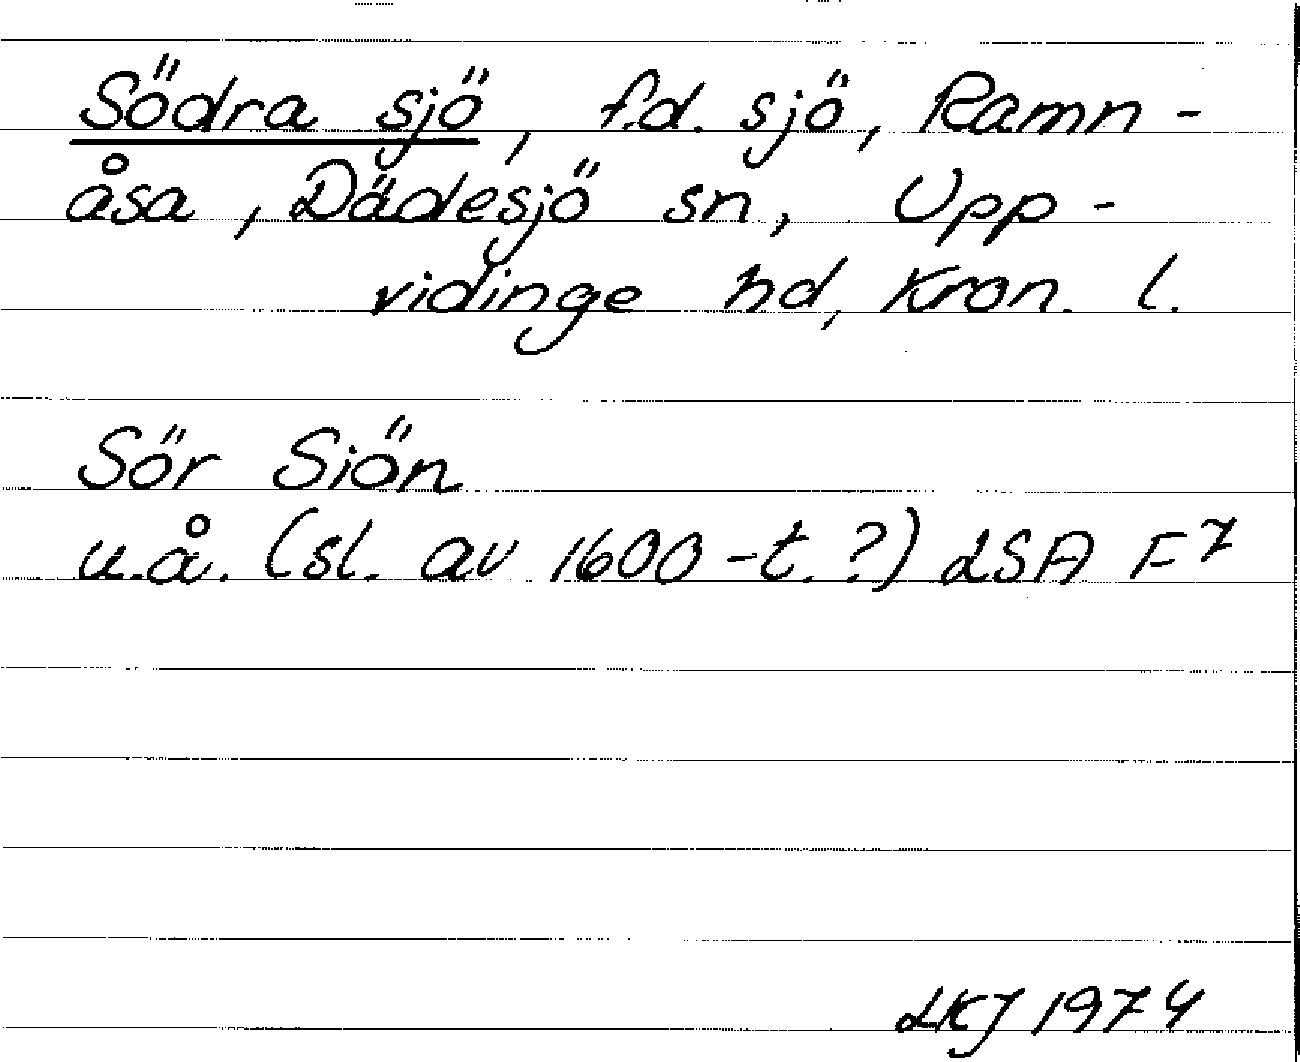 Södra sjö, f.d. sjö, Ramn-
åsa, Dädesjö sn, Upp-
vidinge hd, Kron. l.
Sör Siön
u.å. (sl. av 1600-t.?) LSA F7
LKJ 1974